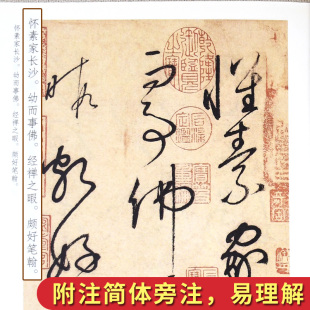 懷素家
事佛
暇頗好
怀素家长沙。幼而事佛。经禅之暇。颇好笔翰。
怀素家长沙。幼而事佛。经禅之暇。颇好笔翰。
附注简体旁注，易理解